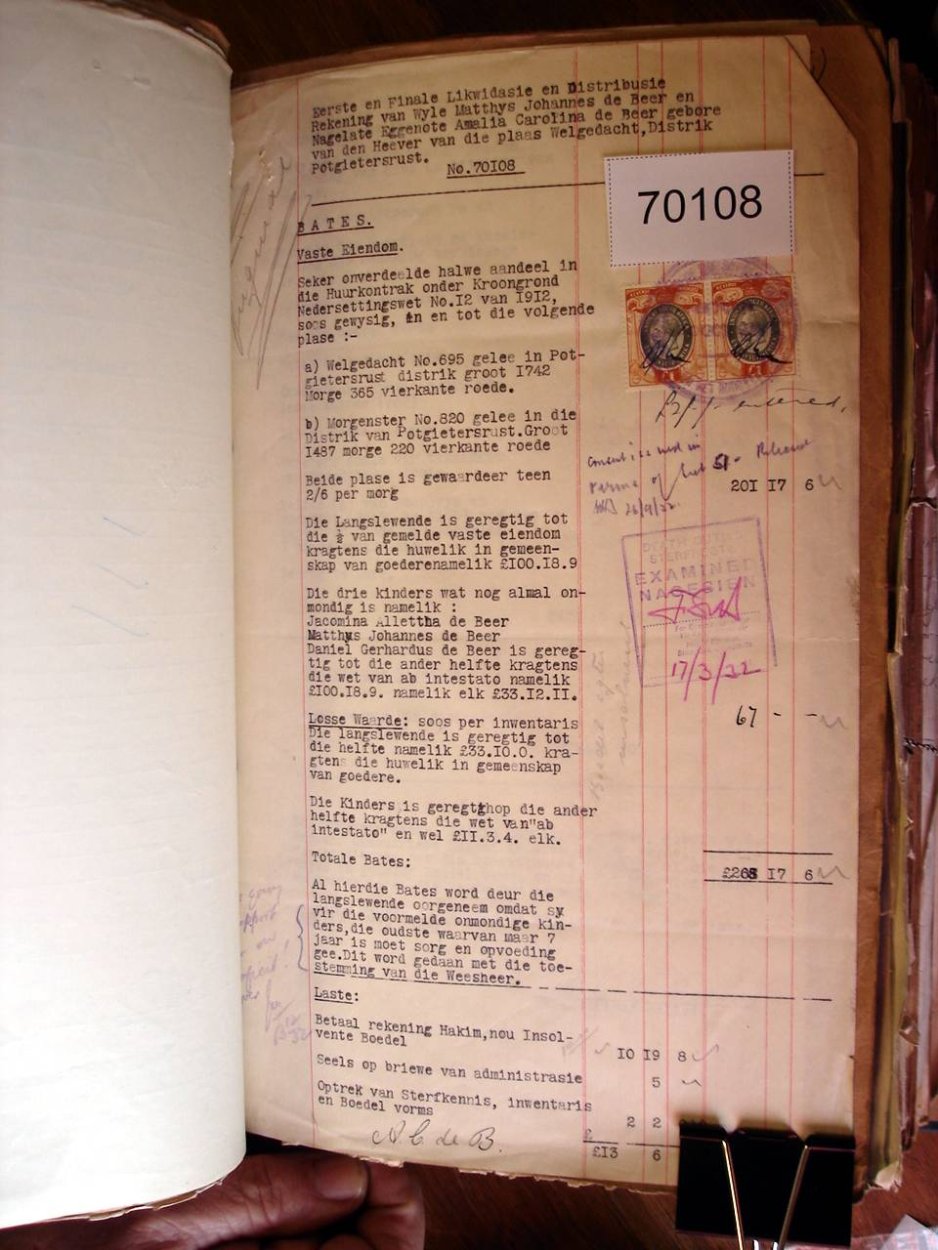 Eerste en Finale Likwidasie en Distribusie
Rekening van Wyle Matthys Johannes de Beer en
Nagelate Eggenote Amalia Carolina de Beer gebore
van den Heever van die plaas Welgedacht,Distrik
Potgietersrust.
No.70I08
70108
BATES.
Vaste Eiendom.
Seker onverdeelde halwe aandeel in
die Huurkontrak onder Kroongrond
Nedersettingswet No.I2 van I9I2,
soos gewysig, in en tot die volgende
plase :-
a) Welgedacht No.695 gelee in Pot-
gietersrust distrik groot I742
Morge 365 vierkante roede.
b) Morgenster No.820 gelee in die
Distrik van Potgietersrust.Groot
I487 morge 220 vierkante roede
Beide plase is gewaardeer teen
2/6 per morg
20I I7 6
26/9/32
Die Langslewende is geregtig tot
die ½ van gemelde vaste eiendom
kragtens die huwelik in gemeen-
skap van goederenamelik £I00.I8.9
EXAMINED
NAGESIEN
17/3/32
Die drie kinders wat nog almal on-
mondig is namelik :
Jacomina Allettha de Beer
Matthys Johannes de Beer
Daniel Gerhardus de Beer is gereg-
tig tot die ander helfte kragtens
die wet van ab intestato namelik
£I00.I8.9. namelik elk £33.I2.II.
Losse Waarde: soos per inventaris
67 - -
Die langslewende is geregtig tot
die helfte namelik £33.I0.0. kra-
gtens die huwelik in gemeenskap
van goedere.
Die Kinders is geregtghop die ander
helfte kragtens die wet van"ab
intestato" en wel £II.3.4. elk.
Totale Bates:
£268 I7 6
Al hierdie Bates word deur die
langslewende oorgeneem omdat sy
vir die voormelde onmondige kin-
ders,die oudste waarvan maar 7
jaar is moet sorg en opvoeding
gee.Dit word gedaan met die toe-
stemming van die Weesheer.
Laste:
Betaal rekening Hakim,nou Insol-
vente Boedel
I0 I9 8
Seels op briewe van administrasie
5
Optrek van Sterfkennis, inventaris
en Boedel vorms
2 2
A C de B.
£
£I3 6